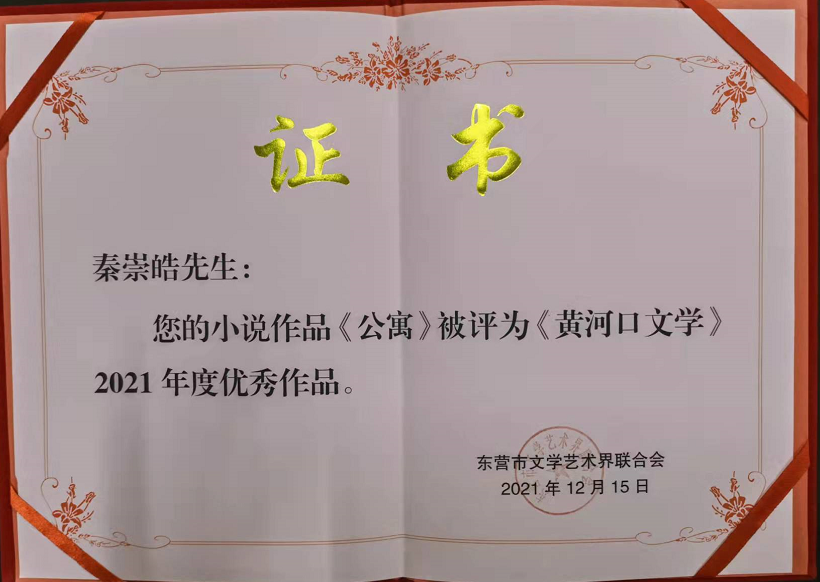 证 书
秦崇皓先生：
您的小说作品《公寓》被评为《黄河口文学》
2021 年度优秀作品。
东营市文学艺术界联合会
2021 年 12 月 15 日